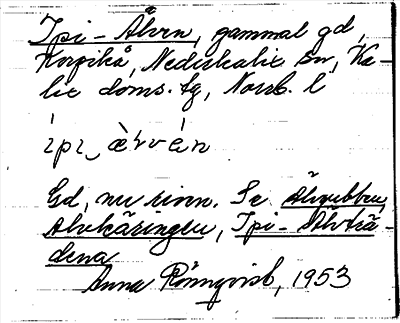 Ipi-Älven, gammal gd,
Korpikå, Nederkalix sn, Ka-
lix doms. tg, Norrb. l
Gd, nu svinn. Se Älvgubben,
Älvkäringen, Ipi-Älvträ-
dena
Anna Rönnqvist, 1953